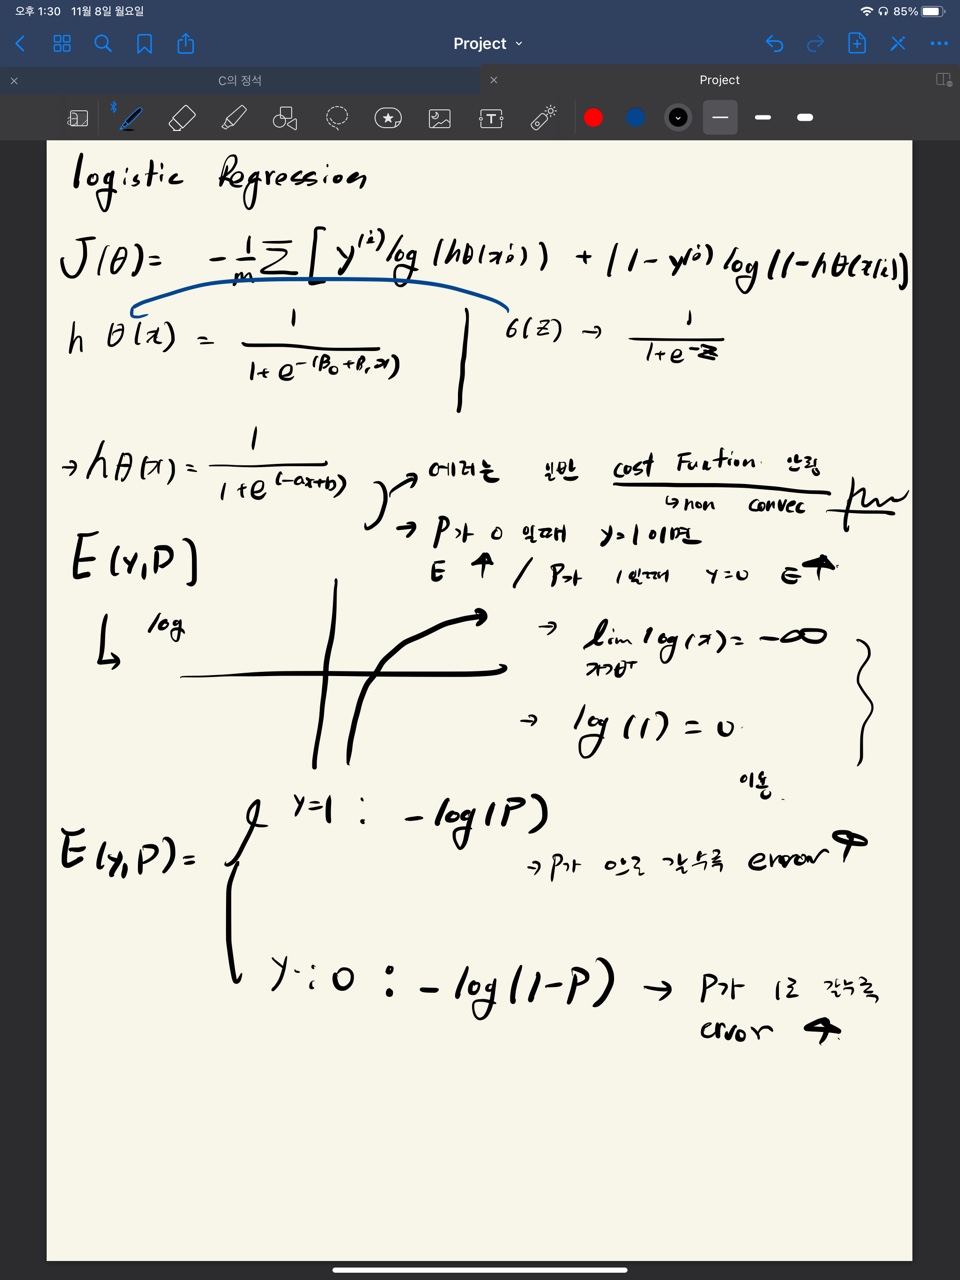 오후 1:30 11월 8일 월요일 85%
Project
C의 정석 Project
logistic Regression
J(θ) = -1/m Σ [ y⁽ⁱ⁾ log (hθ(xⁱ)) + (1-y⁽ⁱ⁾) log (1-hθ(x(i)) ]
h θ(x) = 1 / 1+e^-(β₀+β₁x) | σ(z) → 1 / 1+e^-z
→ hθ(x) = 1 / 1+e^(-ax+b)
→ 에러는 일반 cost Function
↳ non convec
→ P가 0 일때 y=1 이면
E ↑ / P가 1일때 y=0 E↑
E(y,P)
↳ log
→ lim log(x) = -∞
→ log (1) = 0
이용
E(y,P) =
y=1 : -log(P)
→ P가 0으로 갈수록 error ↑
y=0 : -log(1-P) → P가 1로 갈수록
error ↑